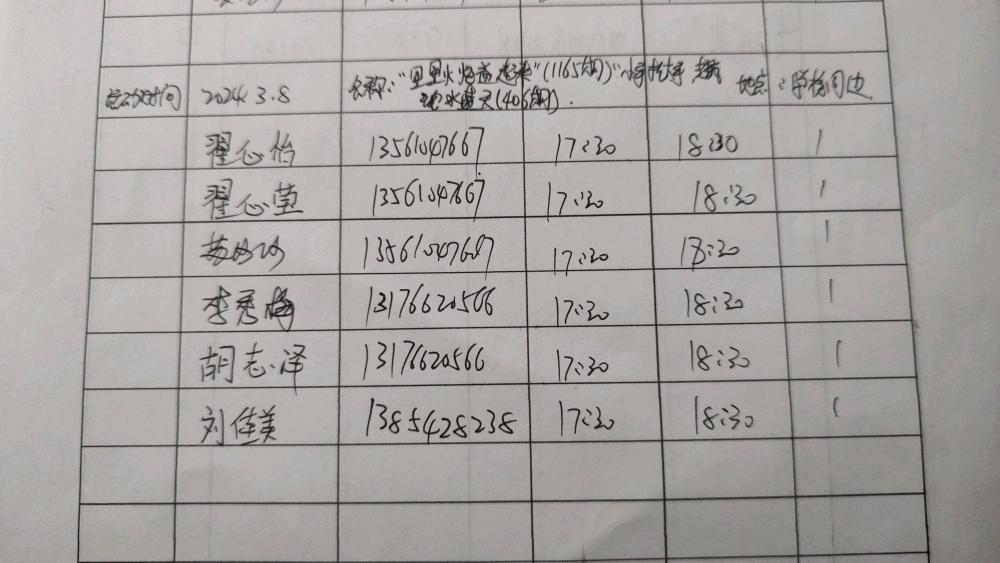 活动时间 2024.3.8 名称:"星星火炬益起来"(1165期)" 小手拉大手 地点:学校周边
(406期).
翟心怡 13561047667 17:30 18:30 1
翟心莹 13561047667 17:30 18:30 1
13561047667 17:30 18:30 1
李秀梅 13176620566 17:30 18:30 1
胡志泽 1317620566 17:30 18:30 1
刘佳美 1385428238 17:30 18:30 1